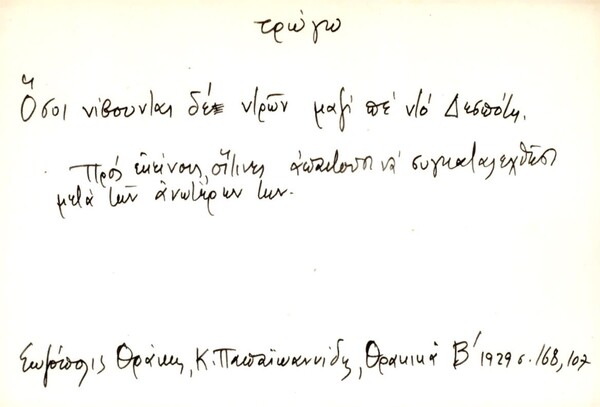 τρώγω
Ὅσοι νίβουνται δέ ντρῶν μαζί πέ ντό Δεσπότη.
Πρός ἐκείνους, οἵτινες ἀπαιτοῦσι νά συγκαταλεχθῶσι
μετά τῶν ἀνωτέρων των.
Σωζόπολις Θράκης, Κ. Παπαϊωαννίδης, Θρακικά Β΄ 1929 σ. 168, 107